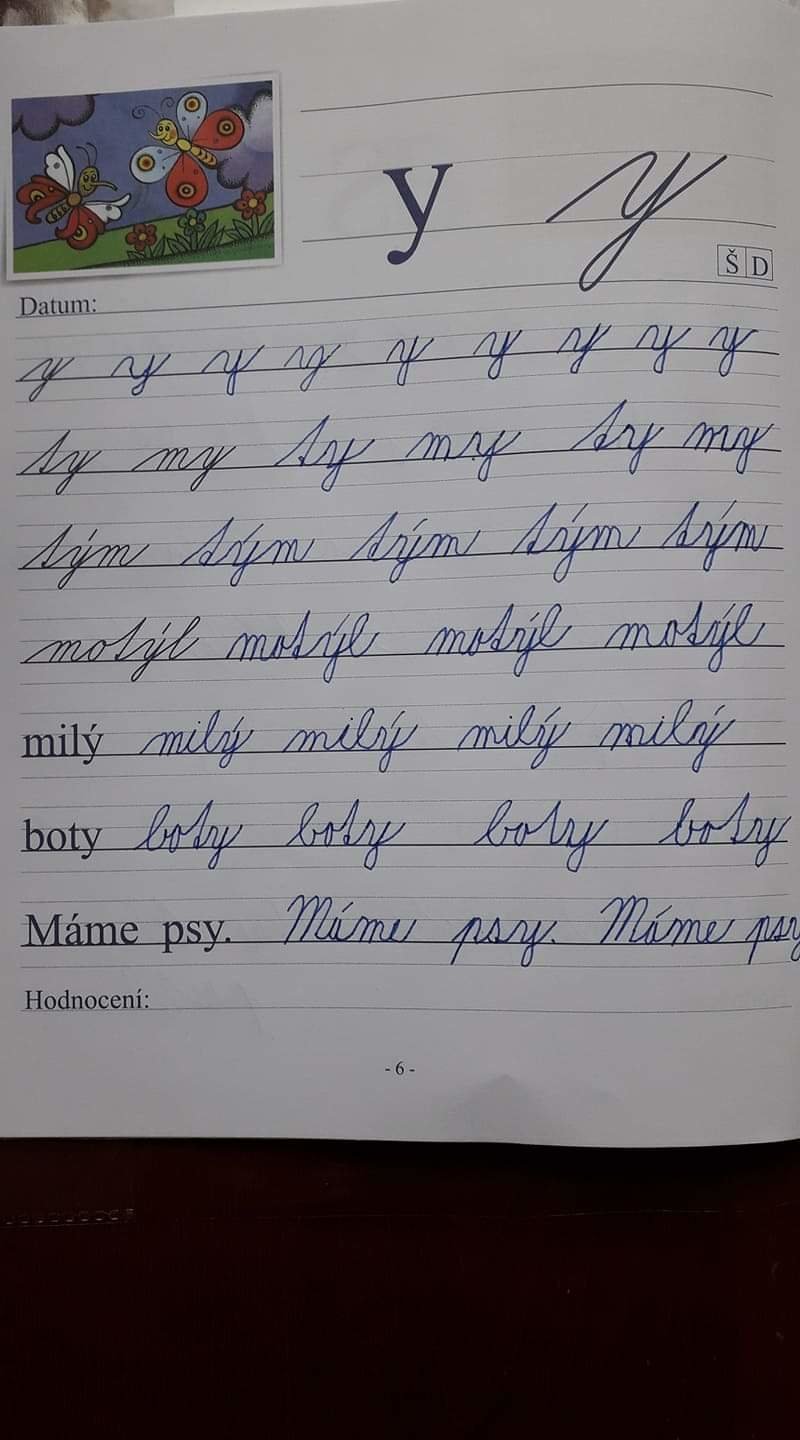 y y
Š D
Datum:
y y y y y y y y y
ty my ty my ty my
tým tým tým tým tým
motýl motýl motýl motýl
milý milý milý milý milý
boty boty boty boty boty
Máme psy. Máme psy. Máme psy
Hodnocení:
- 6 -